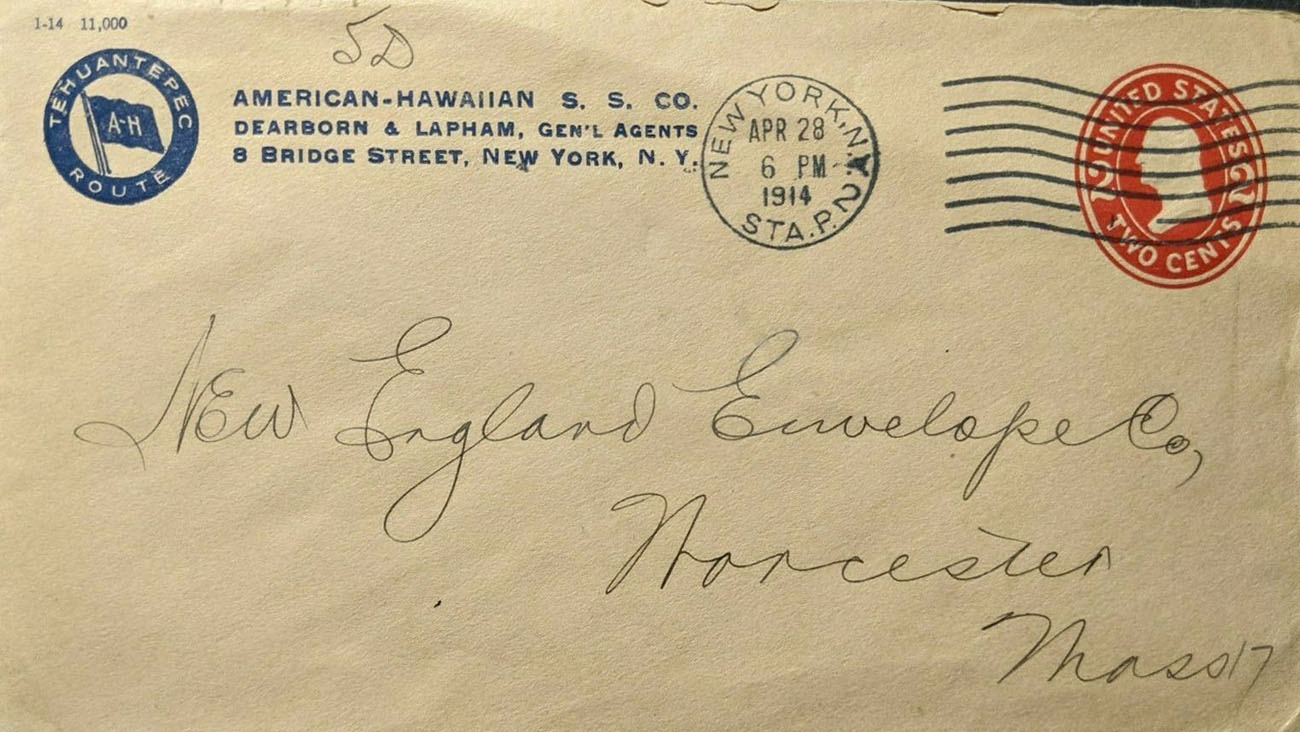 1-14 11,000
5D
TEHUANTEPEC
A-H
ROUTE
AMERICAN-HAWAIIAN S. S. CO.
DEARBORN & LAPHAM, GEN'L AGENTS
8 BRIDGE STREET, NEW YORK, N. Y.
NEW YORK, N.Y.
APR 28
6 PM
1914
STA. P. 2
UNITED STATES
2 2
TWO CENTS
New England Envelope Co,
Worcester
Mass
17